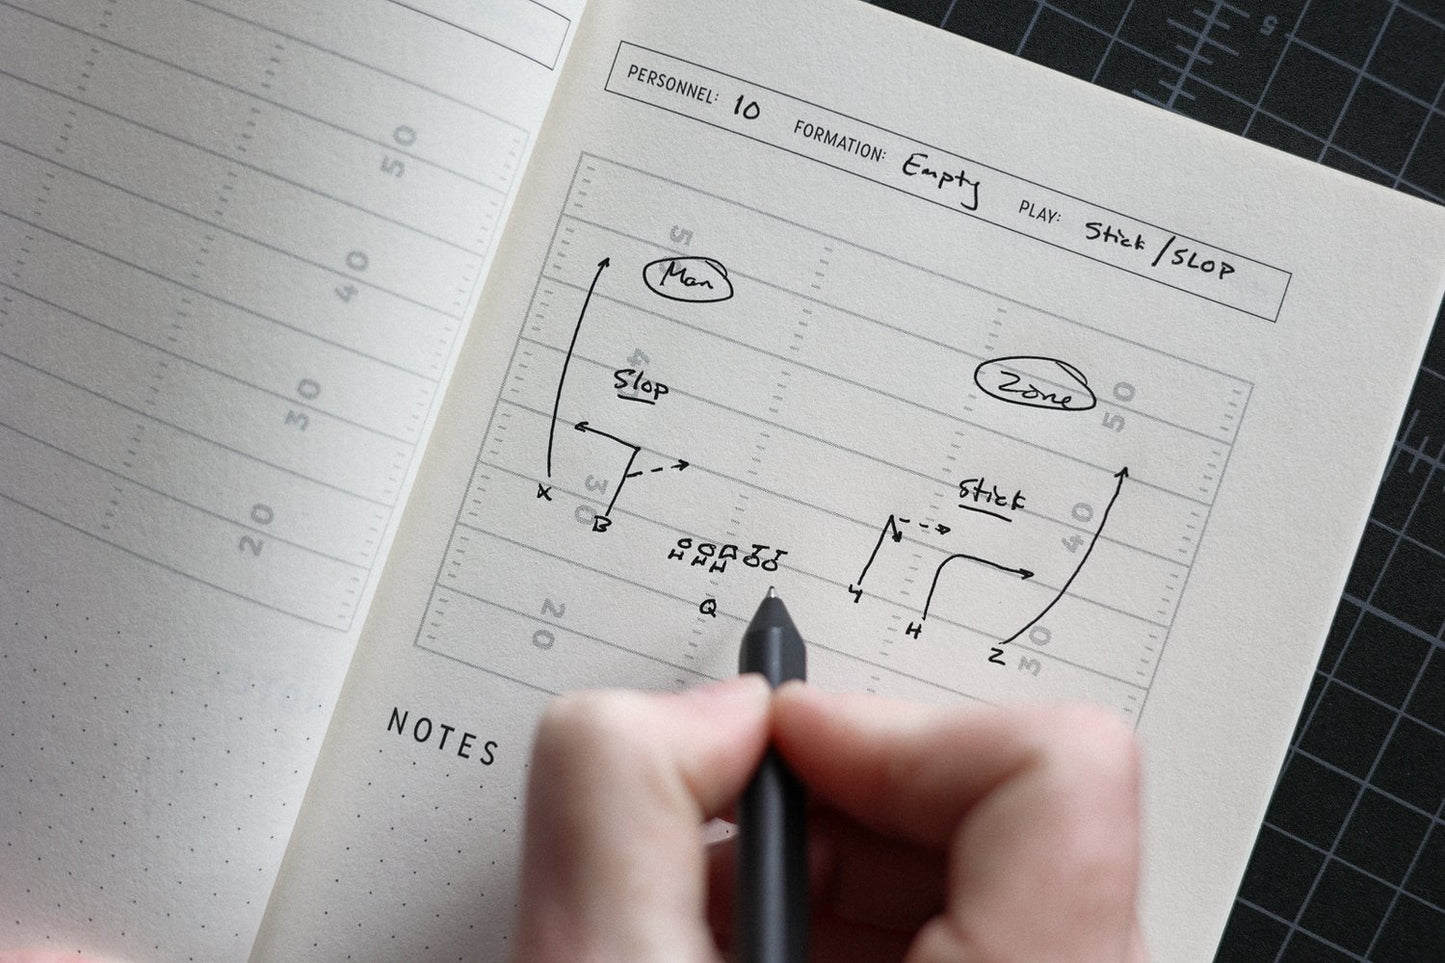 PERSONNEL: 10 FORMATION: Empty PLAY: Stick/SLOP
Man
Zone
Slop
Stick
X
B
Y
H
Z
Q
50
40
30
20
5
4
30
20
50
40
30
NOTES
5